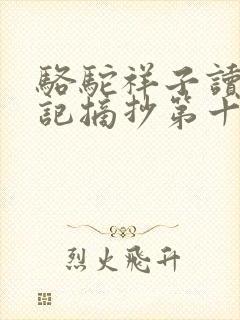 駱駝祥子讀
記摘抄第十
烈火飛升